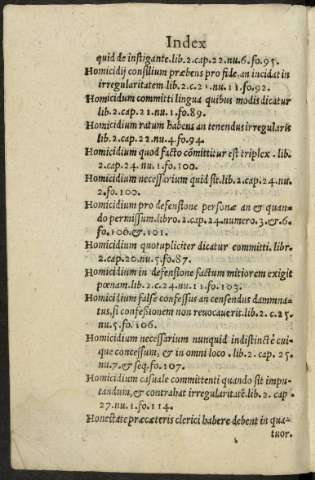 Index
quid de instigante.lib.2.cap.22.nu.6.fo.95.
Homicidij consilium præbens pro fide, an incidat in
irregularitatem.lib.2.c.21.nu.11.fo.92.
Homicidum committi lingua quibus modis dicatur
lib.2.cap.21.nu.1.fo.89.
Homicidium ratum habens an tenendus irregularis
lib.2.cap.22.nu.4.fo.94.
Homicidium quod facto cõmittitur est triplex . lib.
2.cap.24.nu.1.fo.100.
Homicidium necessarium quid sit.lib.2.cap.24.nu.
2.fo.100.
Homicidium pro defensione personæ an & quan-
do permissum.libro.2.cap.24.numero.3.&.6.
fo.100.&.101.
Homicidium quotupliciter dicatur committi. libr.
2.cap.20.nu.5.fo.87.
Homicidium in defensione factum mitiorem exigit
pœnam.lib.2.c.24.nu.11.fo.103.
Homicidium false confessus an censendus dammna-
tus, si confesionem non reuocauerit.lib.2.c.25.
nu.5.fo.106.
Homicidium necessarium nunquid indistinctè cui-
que concessum, & in omni loco .lib.2.cap. 25.
nu.7.& seq.fo.107.
Homicidium casuale committenti quando sit impu-
tandum, & contrahat irregularitatẽ.lib.2. cap.
27.nu.1.fo.114.
Honestate præcæteris clerici habere debent in qua-
tuor.